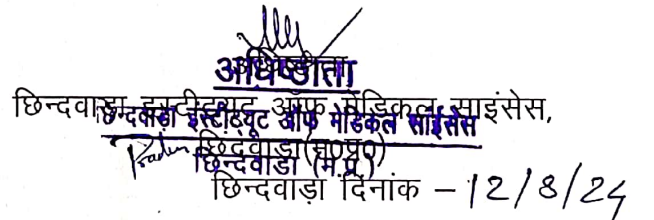 अधिष्ठाता
अधिष्ठाता
छिन्दवाड़ा इन्स्टीट्यूट ऑफ मेडिकल साइंसेस,
छिन्दवाड़ा इंस्टीट्यूट ऑफ मेडिकल साईंसेस
छिंदवाड़ा (म०प्र०)
छिन्दवाड़ा (म.प्र.)
छिन्दवाड़ा दिनांक - 12/8/24